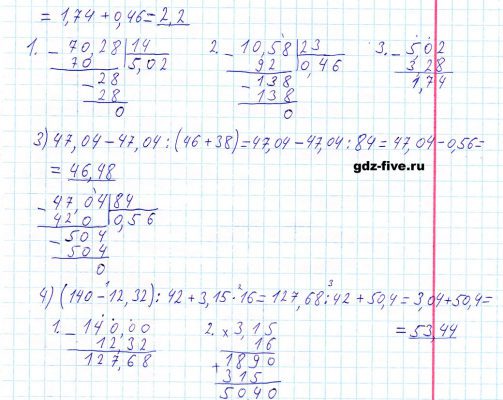 = 1,74 + 0,46 = 2,2
1. 70,28 | 14
70 | 5,02
- 28
28
0
2. - 10,58 | 23
92 | 0,46
- 138
138
0
3. - 5,02
3,28
1,74
3) 47,04 - 47,04 : (46 + 38) = 47,04 - 47,04 : 84 = 47,04 - 0,56 =
gdz-five.ru
= 46,48
- 47,04 | 84
42,0 | 0,56
- 504
504
0
4) (140 - 12,32) : 42 + 3,15 · 16 = 127,68 : 42 + 50,4 = 3,04 + 50,4 =
= 53,44
1. - 140,00
12,32
127,68
2. × 3,15
16
+ 1890
315
5040